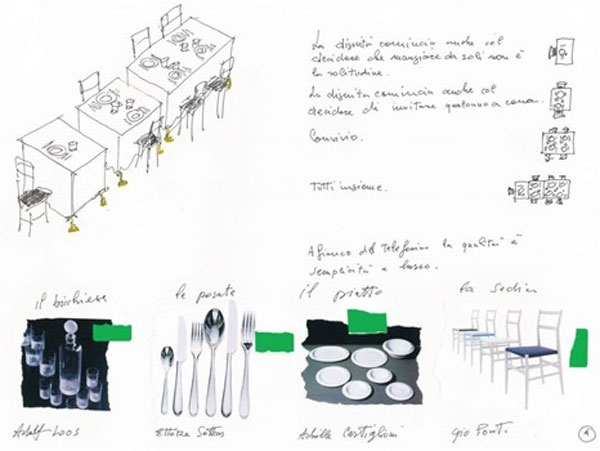 La dignità comincia anche col
decidere che mangiare da soli non è
la solitudine.
La dignità comincia anche col
decidere di invitare qualcuno a cena.
Convivio.
Tutti insieme.
A fianco del telefonino la qualità è
semplicità e lusso.
il bicchiere
le posate
il piatto
la sedia
Adolf Loos
Ettore Sottsass
Achille Castiglioni
Gio Ponti.